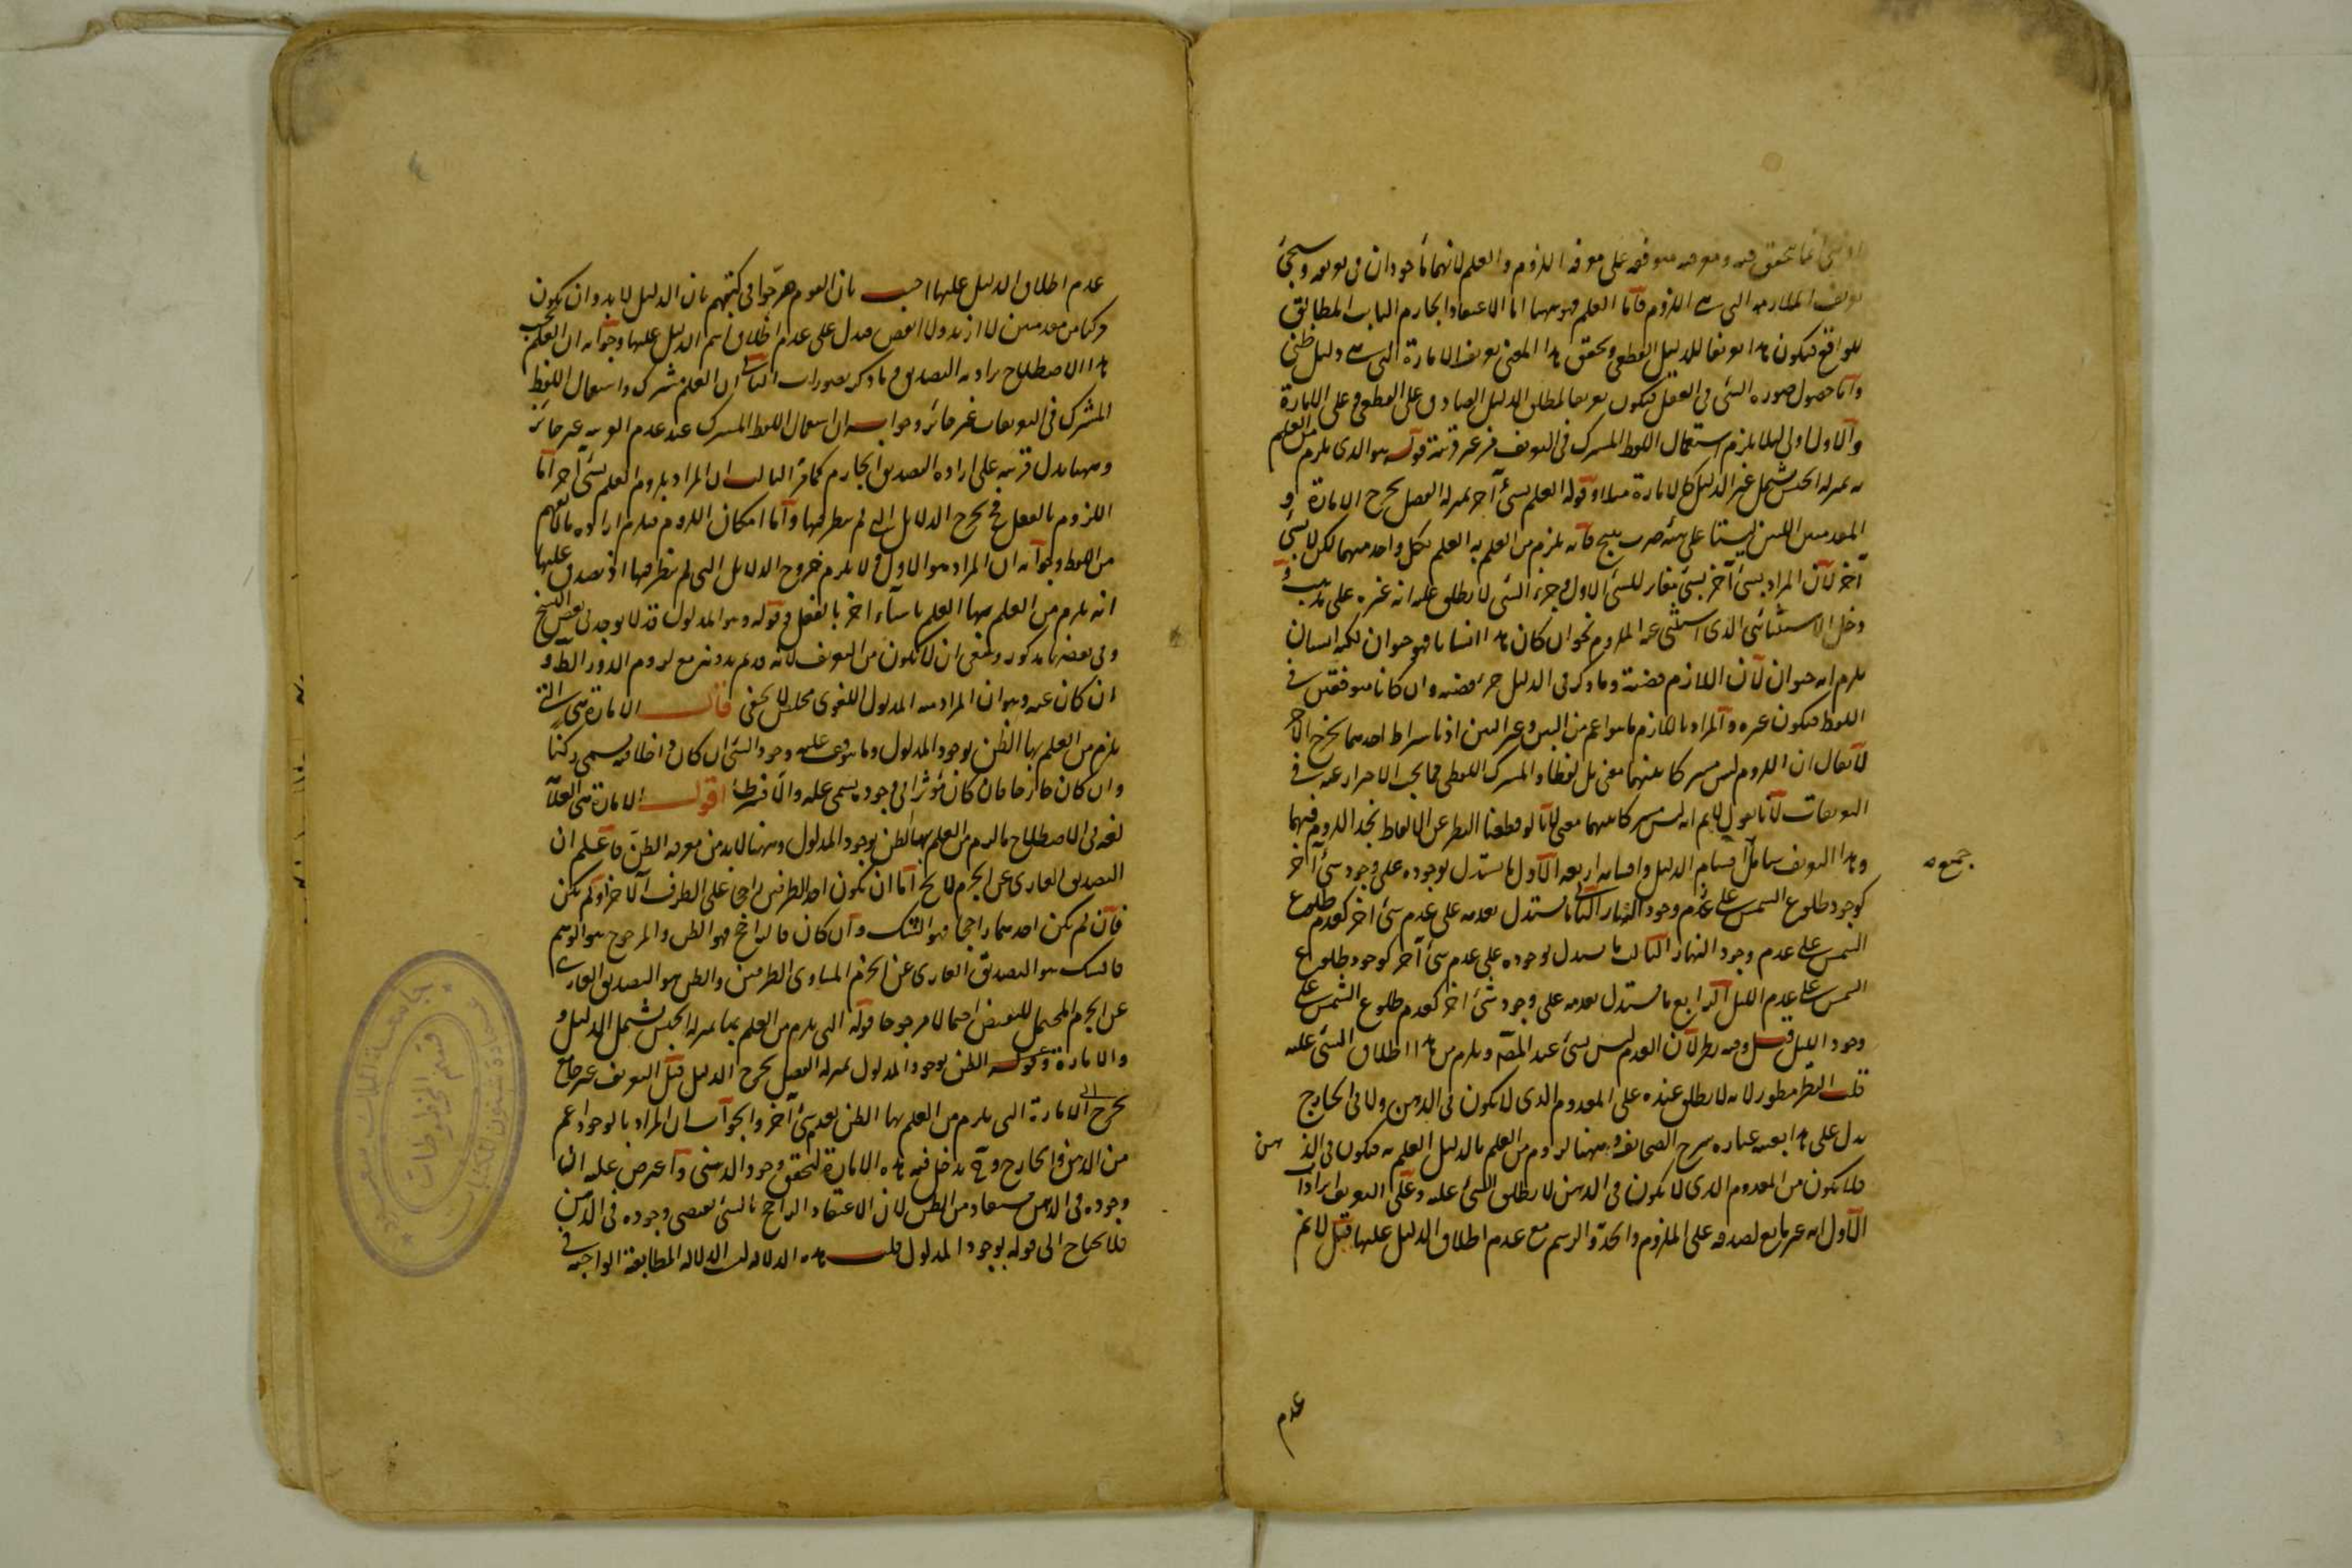 انما يتحقق فيه ومعرفته متوقفة على معرفة اللزوم والعلم لانهما مأخوذان في تعريفه وسيجئ
تعريف الملازمة التى هى اللزوم فأما العلم فهو ههنا اما الاعتقاد الجازم الثابت المطابق
للواقع فيكون هذا تعريفا للدليل القطعى وتحقق هذا المعنى تعريف الامارة التى هى دليل ظنى
وأما حصول صورة الشئ في العقل فيكون تعريفا لمطلق الدليل الصادق على القطعى وعلى الامارة
والاول اولى لئلا يلزم استعمال اللفظ المشترك في التعريف من غير قرينة قوله هو الذى يلزم من العلم
به بمنزلة الجنس يشمل غير الدليل كالامارة مثلا وقوله العلم بشئ آخر بمنزلة الفصل يخرج الامارة و
المقدمتين اللتين ليستا على هيئة ضرب منتج فانه يلزم من العلم به العلم بكل واحد منهما لكن لا بشئ
آخر لان المراد بشئ آخر شئ مغاير للشئ الاول وجزء الشئ لا يطلق عليه انه غيره على مذهب و
دخل الاستثنائى الذى استثنى عين الملزوم نحو ان كان هذا انسانا فهو حيوان لكنه انسان
يلزم انه حيوان لان اللازم قضية وما ذكر في الدليل جزء قضية وان كانا متوافقين في
اللفظ فيكون غيره والمراد باللازم ما هو اعم من البين وغير البين اذ باشتراط احدهما يخرج الآخر
لا يقال ان اللزوم ليس مشتركا بينهما معنى بل لفظا والمشترك اللفظى مما يجب الاحتراز عنه في
التعريفات لانا نقول لا نم انه ليس مشتركا بينهما معنى لانا لو قطعنا النظر عن الالفاظ نجد اللزوم فيهما
وهذا التعريف شامل اقسام الدليل واقسامه اربعة الاول ما يستدل بوجوده على وجود شئ آخر
جميع
كوجود طلوع الشمس على وجود النهار الثانى ما يستدل بعدمه على عدم شئ آخر كعدم طلوع
الشمس على عدم وجود النهار الثالث ما يستدل بوجوده على عدم شئ آخر كوجود طلوع
الشمس على عدم الليل الرابع ما يستدل بعدمه على وجود شئ آخر كعدم طلوع الشمس على
وجود الليل قيل وفيه نظر لان العدم ليس بشئ عند المص ويلزم من هذا اطلاق الشئ عليه
قلت النظر منظور لانه لا يطلق عنده على المعدوم الذى لا يكون في الذهن ولا في الخارج
يدل على هذا بعينه عبارة شرح الصحائف وههنا لزوم من العلم بالدليل العلم به فيكون في الذهن
فلا يكون من المعدوم الذى لا يكون في الذهن لا يطلق الشئ عليه وعلى التعريف ايرادات
الاول انه غير مانع لصدقه على الملزوم والحد والرسم مع عدم اطلاق الدليل عليها قيل لا نم
عدم
عدم اطلاق الدليل عليها اجيب بان القوم صرحوا في كتبهم بان الدليل لا بد وان يكون
مركبا من مقدمتين لا ازيد ولا انقص فدل على عدم اطلاق اسم الدليل عليها وجوابه ان العلم بحسب
هذا الاصطلاح يراد به التصديق وما ذكر تصورات الثانى ان العلم مشترك واستعمال اللفظ
المشترك في التعريفات غير جائز وجوابه ان استعمال اللفظ المشترك عند عدم القرينة غير جائز
وههنا يدل قرينة على ارادة التصديق الجازم كما مر الثالث ان المراد بلزوم العلم بشئ آخر اما
اللزوم بالفعل فح يخرج الدلائل التى لم ينظر فيها واما امكان اللزوم فيلزم ارادة ما لا يفهم
من اللفظ وجوابه ان المراد هو الاول ولا يلزم خروج الدلائل التى لم ينظر فيها اذ يصدق عليها
انه يلزم من العلم بها العلم باشياء اخر بالفعل وقوله وهو المدلول قد لا يوجد في بعض النسخ
وفي بعضها مذكور وينبغى ان لا يكون من التعريف لانه قد تم بدونه مع لزوم الدور الظ و
ان كان عنه وهو ان المراد منه المدلول اللغوى مخلص لا يخفى قال الامارة هى التى
يلزم من العلم بها الظن بوجود المدلول وما يتوقف عليه وجود الشئ ان كان داخلا فيه يسمى ركنا
وان كان خارجا فان كان مؤثرا في وجوده يسمى علة والا فشرطا اقول الامارة هى العلامة
لغة وفي الاصطلاح ما يلزم من العلم بها الظن بوجود المدلول وههنا لا بد من معرفة الظن فاعلم ان
التصديق العارى عن الجزم لا يخ اما ان يكون احد الطرفين راجحا على الطرف الآخر او لم يكن
فان لم يكن احدهما راجحا فهو الشك وان كان فالراجح فهو الظن والمرجوح هو الوهم
فالشك هو التصديق العارى عن الجزم المساوى الطرفين والظن هو التصديق العارى
عن الجزم المحتمل للنقيض احتمالا مرجوحا قوله التى يلزم من العلم بها بمنزلة الجنس يشمل الدليل و
والامارة وقوله الظن بوجود المدلول بمنزلة الفصل يخرج الدليل قيل التعريف غير جامع
يخرج الامارة التى يلزم من العلم بها الظن بعدم شئ آخر والجواب ان المراد بالوجود اعم
من الذهن والخارج وح يدخل فيه هذه الامارة لتحقق وجود الذهنى واعترض عليه بان
وجوده في الذهن مستفاد من الظن لان الاعتقاد الراجح بالشئ يقتضى وجوده في الذهن
فلا يحتاج الى قوله بوجود المدلول قلت هذه الدلالة ليست الدلالة المطابقة الواجبة في
جامعة الملك سعود
عمادة شئون المكتبات
قسم المخطوطات